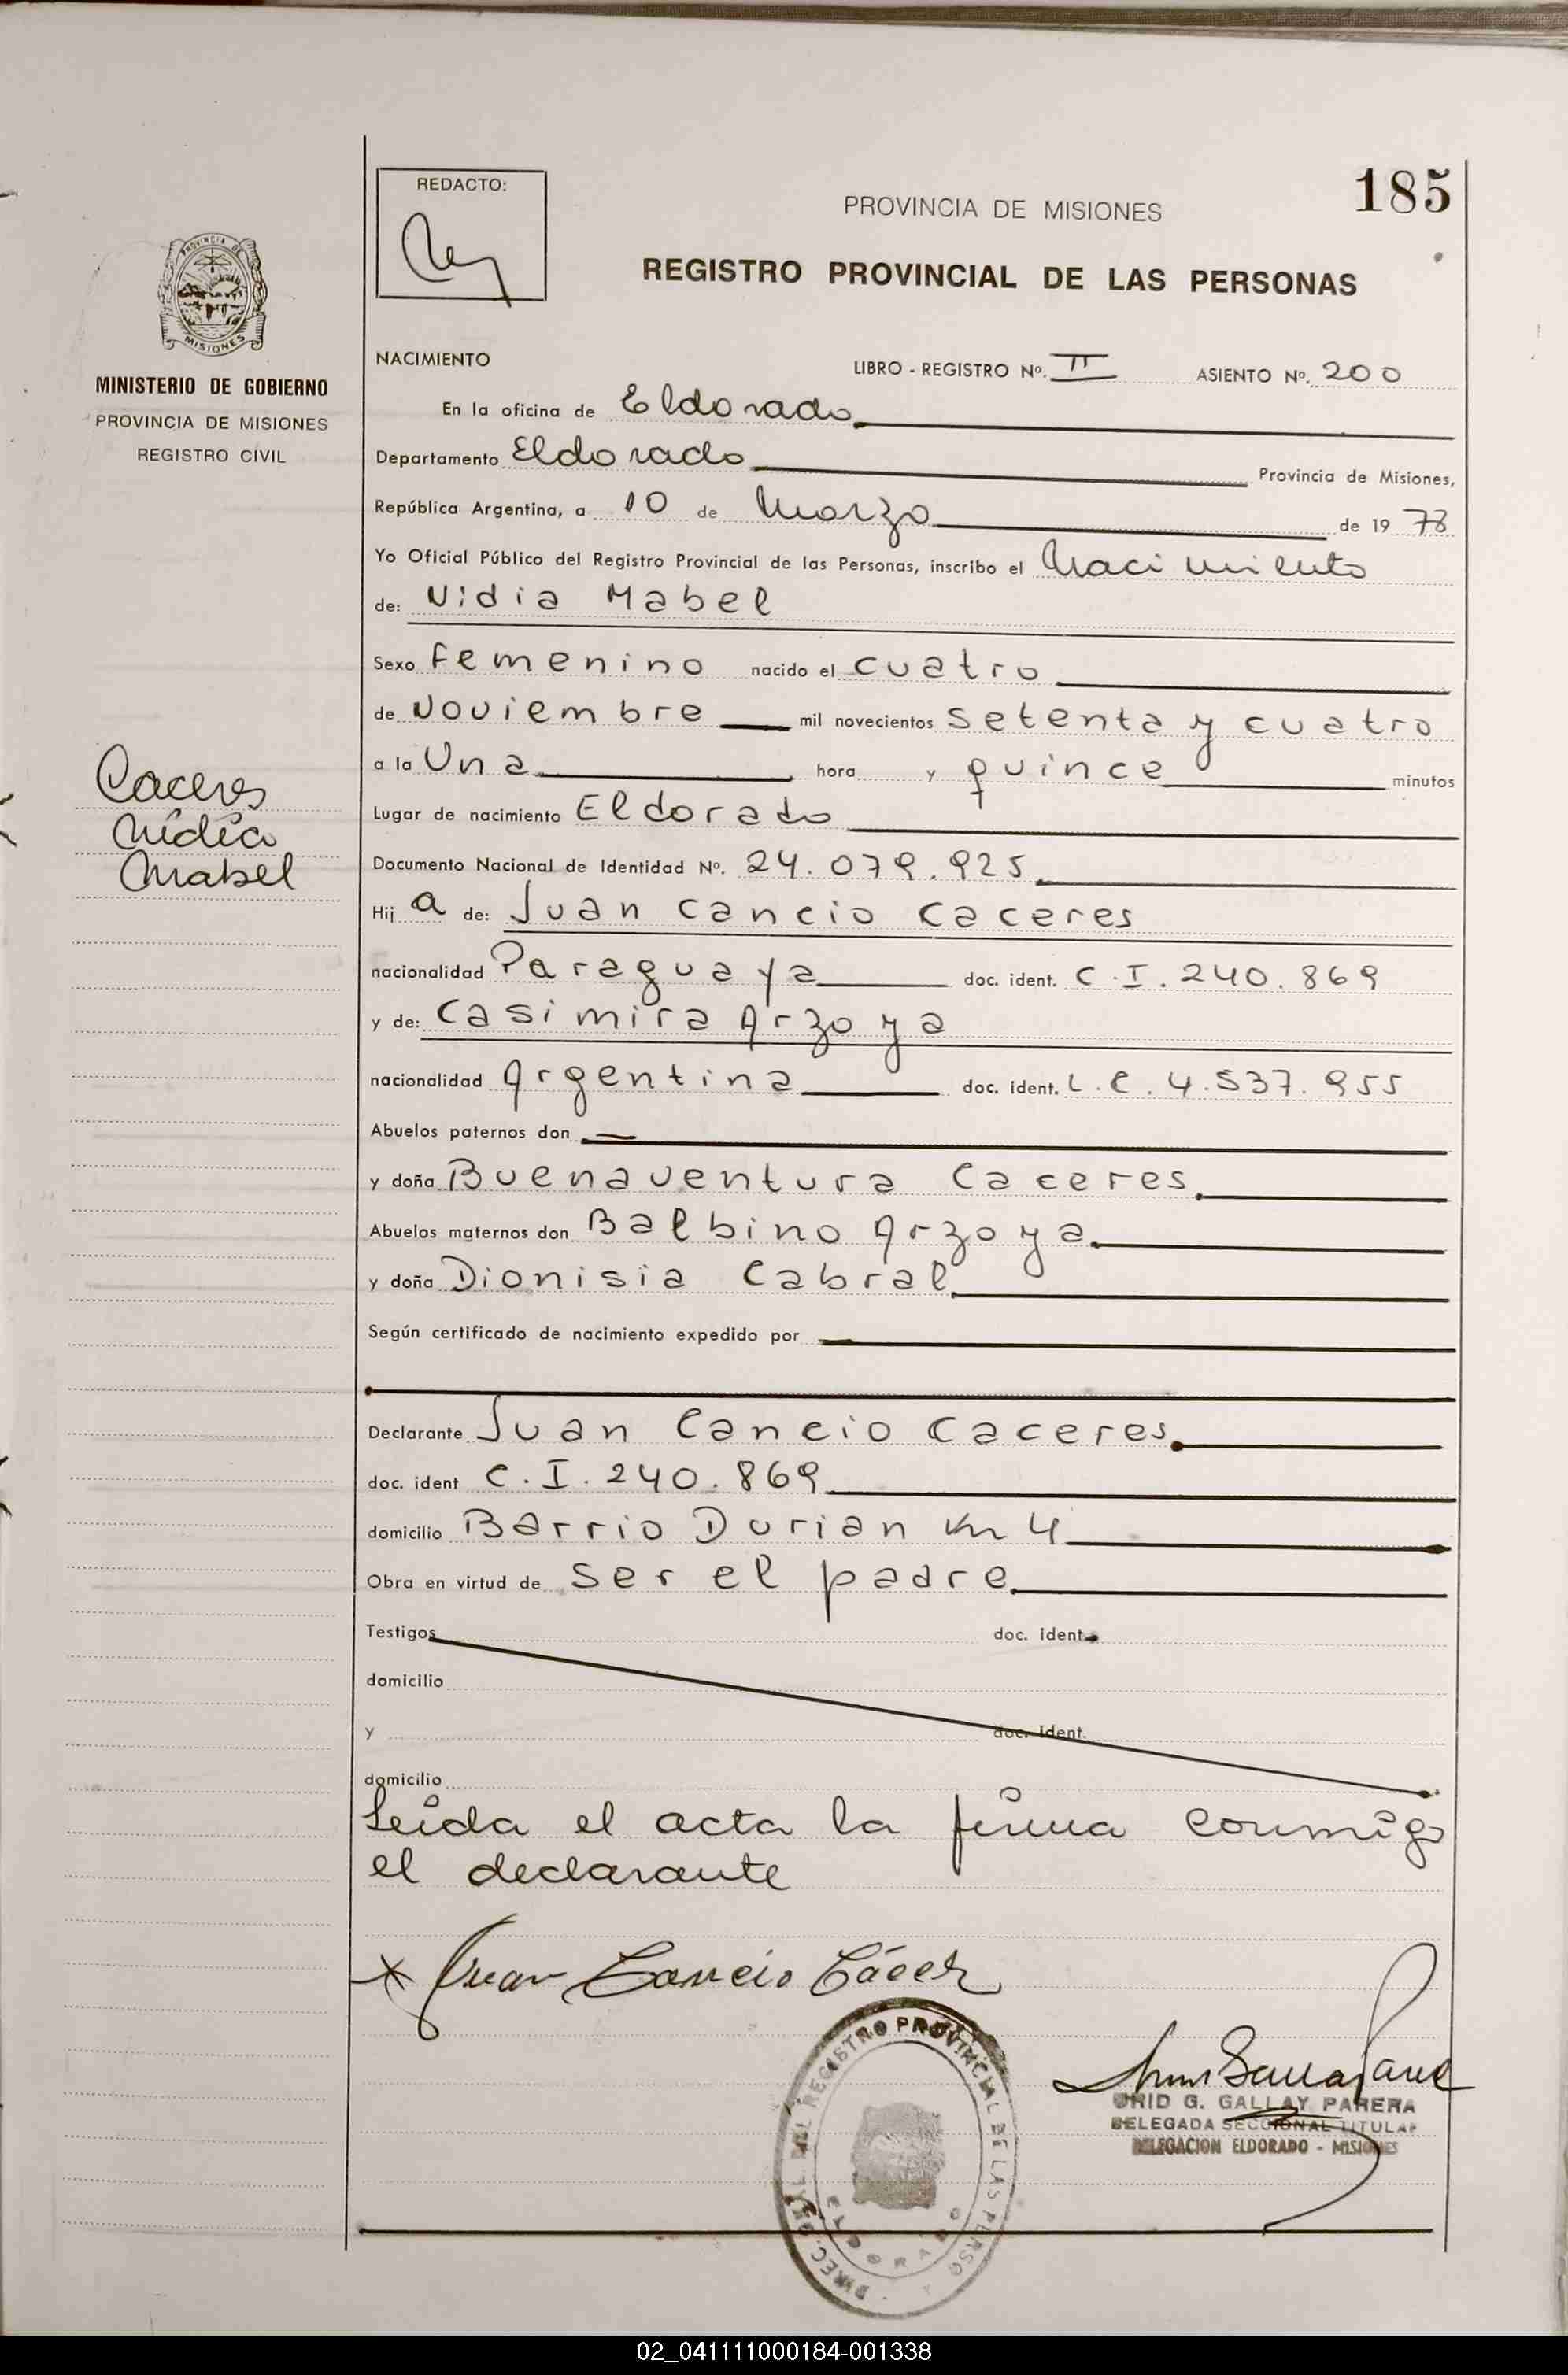 185
REDACTO:
PROVINCIA DE MISIONES
REGISTRO PROVINCIAL DE LAS PERSONAS
PROVINCIA DE
MISIONES
MINISTERIO DE GOBIERNO
PROVINCIA DE MISIONES
REGISTRO CIVIL
NACIMIENTO LIBRO - REGISTRO Nº. II ASIENTO Nº. 200
En la oficina de Eldorado
Departamento Eldorado Provincia de Misiones,
República Argentina, a 10 de Marzo de 19 78
Yo Oficial Público del Registro Provincial de las Personas, inscribo el Nacimiento
de: Nidia Mabel
Sexo Femenino nacido el cuatro
de Noviembre mil novecientos setenta y cuatro
a la Una hora y quince minutos
Caceres
Nidia
Mabel
Lugar de nacimiento Eldorado
Documento Nacional de Identidad Nº. 24.079.925
Hij a de: Juan Cancio Caceres
nacionalidad Paraguaya doc. ident. C.I. 240.869
y de: Casimira Arzoya
nacionalidad Argentina doc. ident. L.C. 4.537.955
Abuelos paternos don —
y doña Buenaventura Caceres
Abuelos maternos don Balbino Arzoya
y doña Dionisia Cabral
Según certificado de nacimiento expedido por
Declarante Juan Cancio Caceres
doc. ident C.I. 240.869
domicilio Barrio Durian Km 4
Obra en virtud de ser el padre
Testigos doc. ident.
domicilio
y doc. ident.
domicilio
Leida el acta la firma conmigo
el declarante
Juan Cancio Cácer
DIREC. GRAL. DEL REGISTRO PROVINCIAL DE LAS PERSO
ELDORADO
GALLAY PARERA
DELEGADA SECCIONAL TITULAR
DELEGACION ELDORADO - MISIONES
02_041111000184-001338